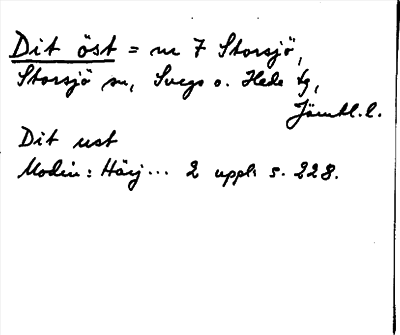 Dit öst = nr 7 Storsjö,
Storsjö sn, Svegs o. Hede tg,
Jämtl.l.
Dit ust
Modin: Härj... 2 uppl. s. 228.